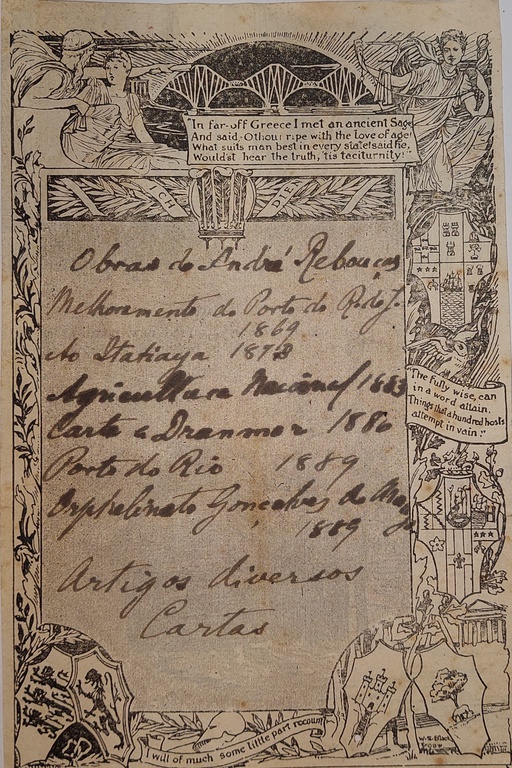 "In far-off Greece I met an ancient Sage
And said, O thou! ripe with the love of age!
What suits man best in every state? said he,
Would'st hear the truth, 'tis taciturnity."
CH DIEN
Obras de André Rebouças
Melhoramento do Porto do Rio de J.
1869
Ao Itatiaya 1878
Agricultura Nacional 1883
Carta a Dranmor 1886
Porto do Rio 1889
Orphelinato Gonçalves de
1889
Artigos diversos
Cartas
"The fully wise, can
in a word attain,
Things that a hundred hosts
attempt in vain."
I will of much some little part recount